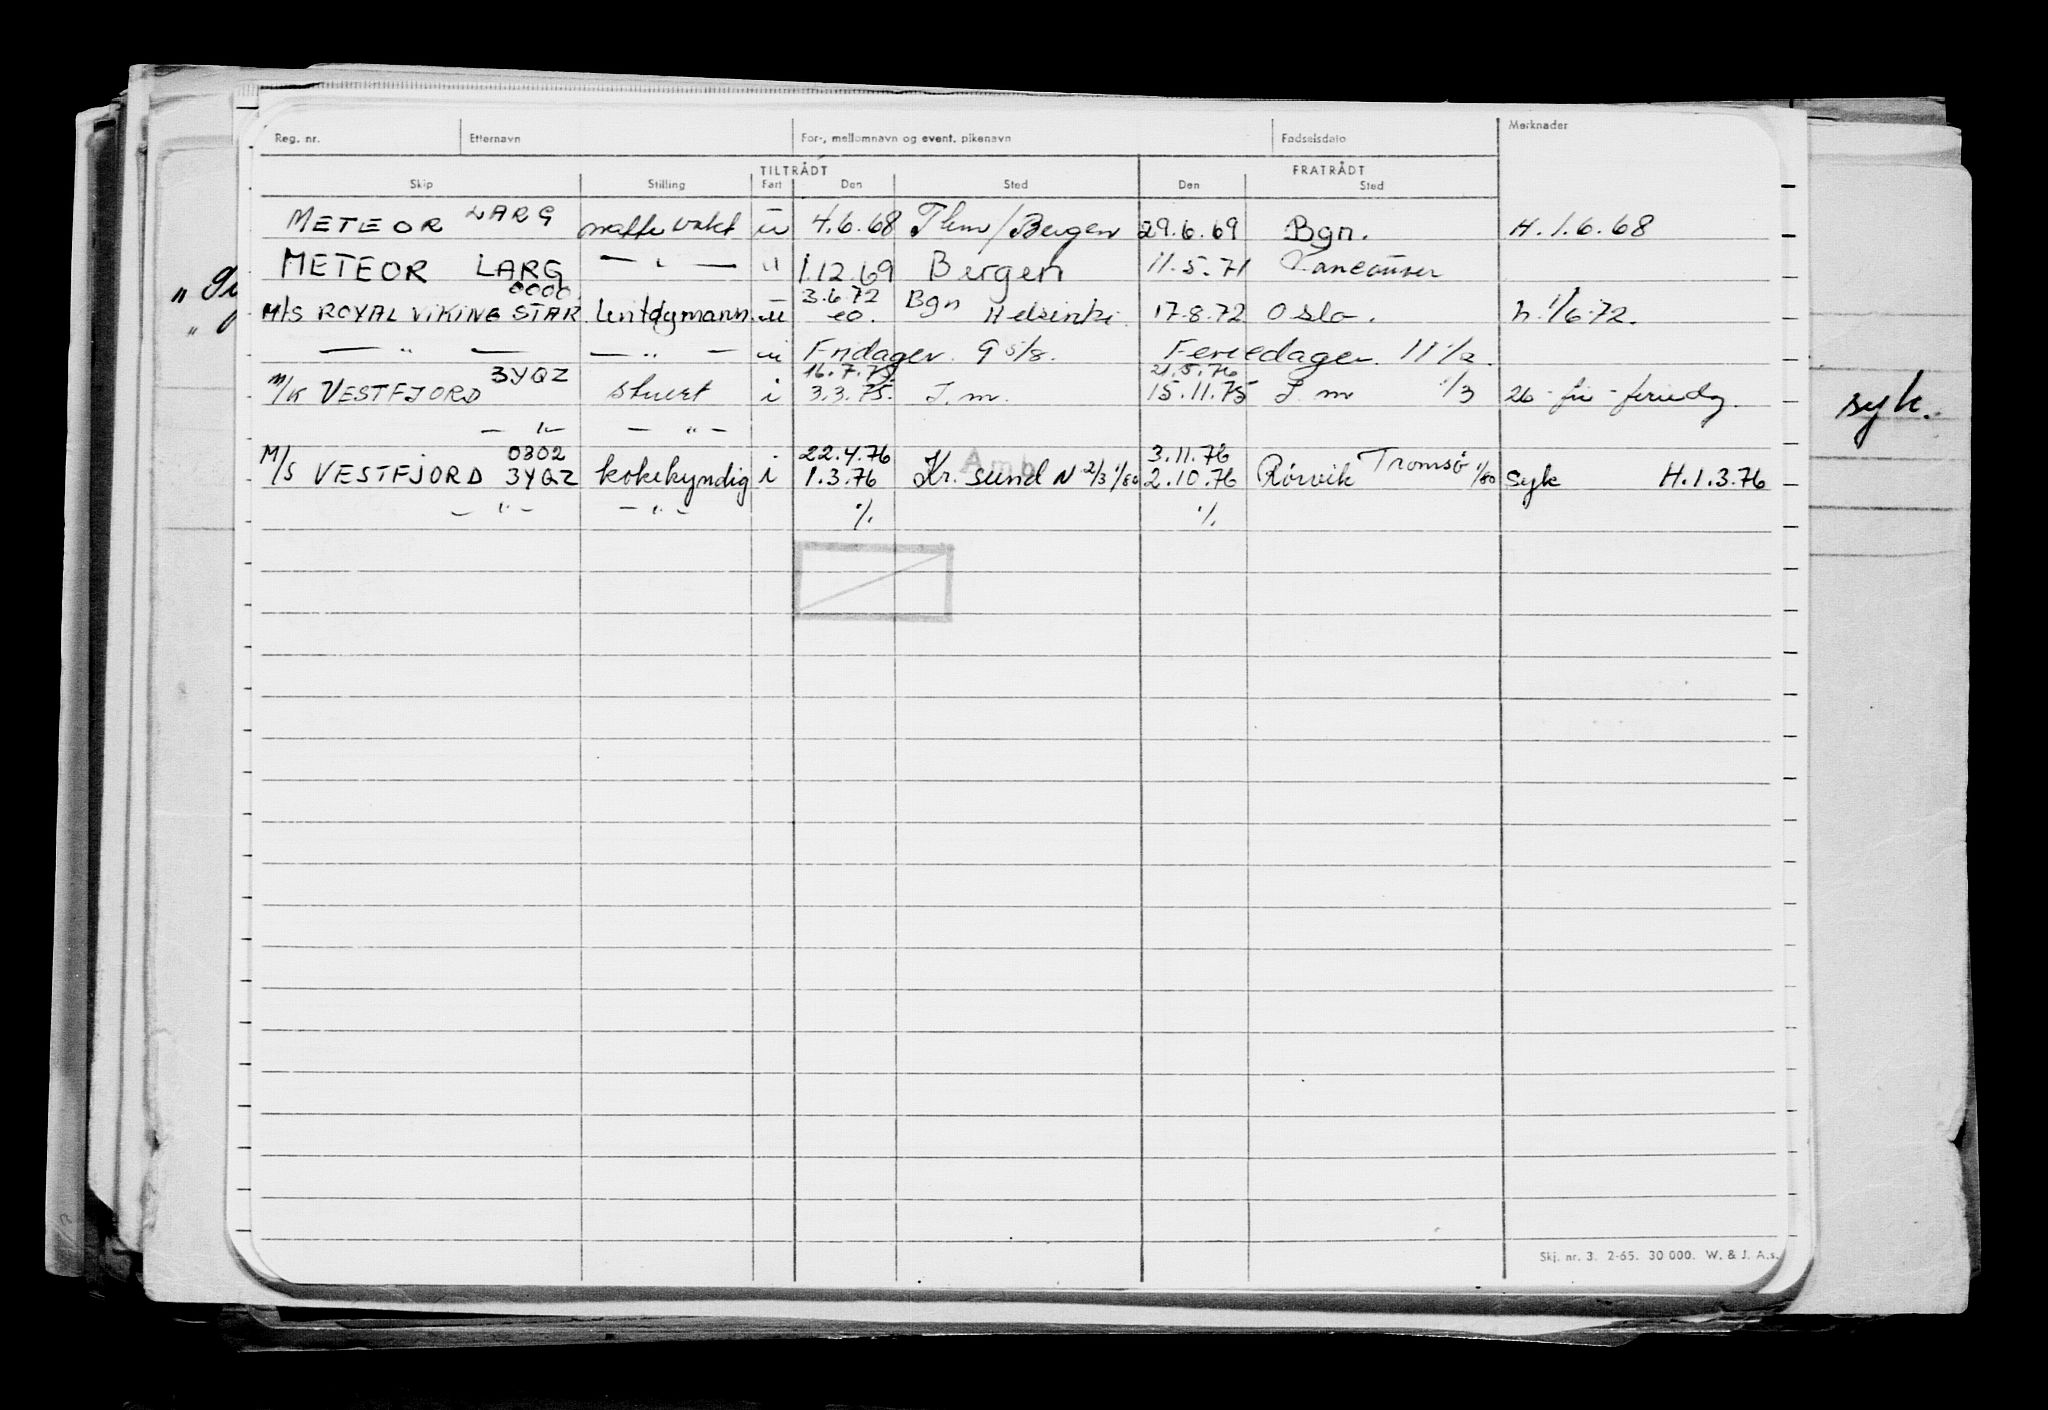 Reg. nr. Etternavn For-, mellomnavn og event. pikenavn Fødselsdato Merknader
TILTRÅDT FRATRÅDT
Skip Stilling Fart Den Sted Den Sted
METEOR LARG natte vakt u 4.6.68 Thm/Bergen 29.6.69 Bgn. H. 1.6.68
METEOR LARG — " — u 1.12.69 Bergen 11.5.71 Vancouver
0000 3.6.72 Bgn
M/S ROYAL VIKING STAR. u eo. Helsinki. 17.8.72 Oslo. h. 1/6.72.
— " — — " — u Fridager. 9 5/8. Feriedager. 11 1/2.
3YQZ 16.7.75. 21.5.76
M/K VESTFJORD stuert i 3.3.75. I.m. 15.11.75 I.m 1/3 26 - fri - feriedg.
— " — — " —
0302 22.4.76 3.11.76 Tromsø 1/80
M/S VESTFJORD 3YQZ kokekyndig i 1.3.76 Kr. sund N 2/3 1/80 2.10.76 Rørvik syk H.1.3.76
— " — — " — % %
Amb
syk.
Skj. nr. 3. 2-65. 30 000. W. & J. A.s.